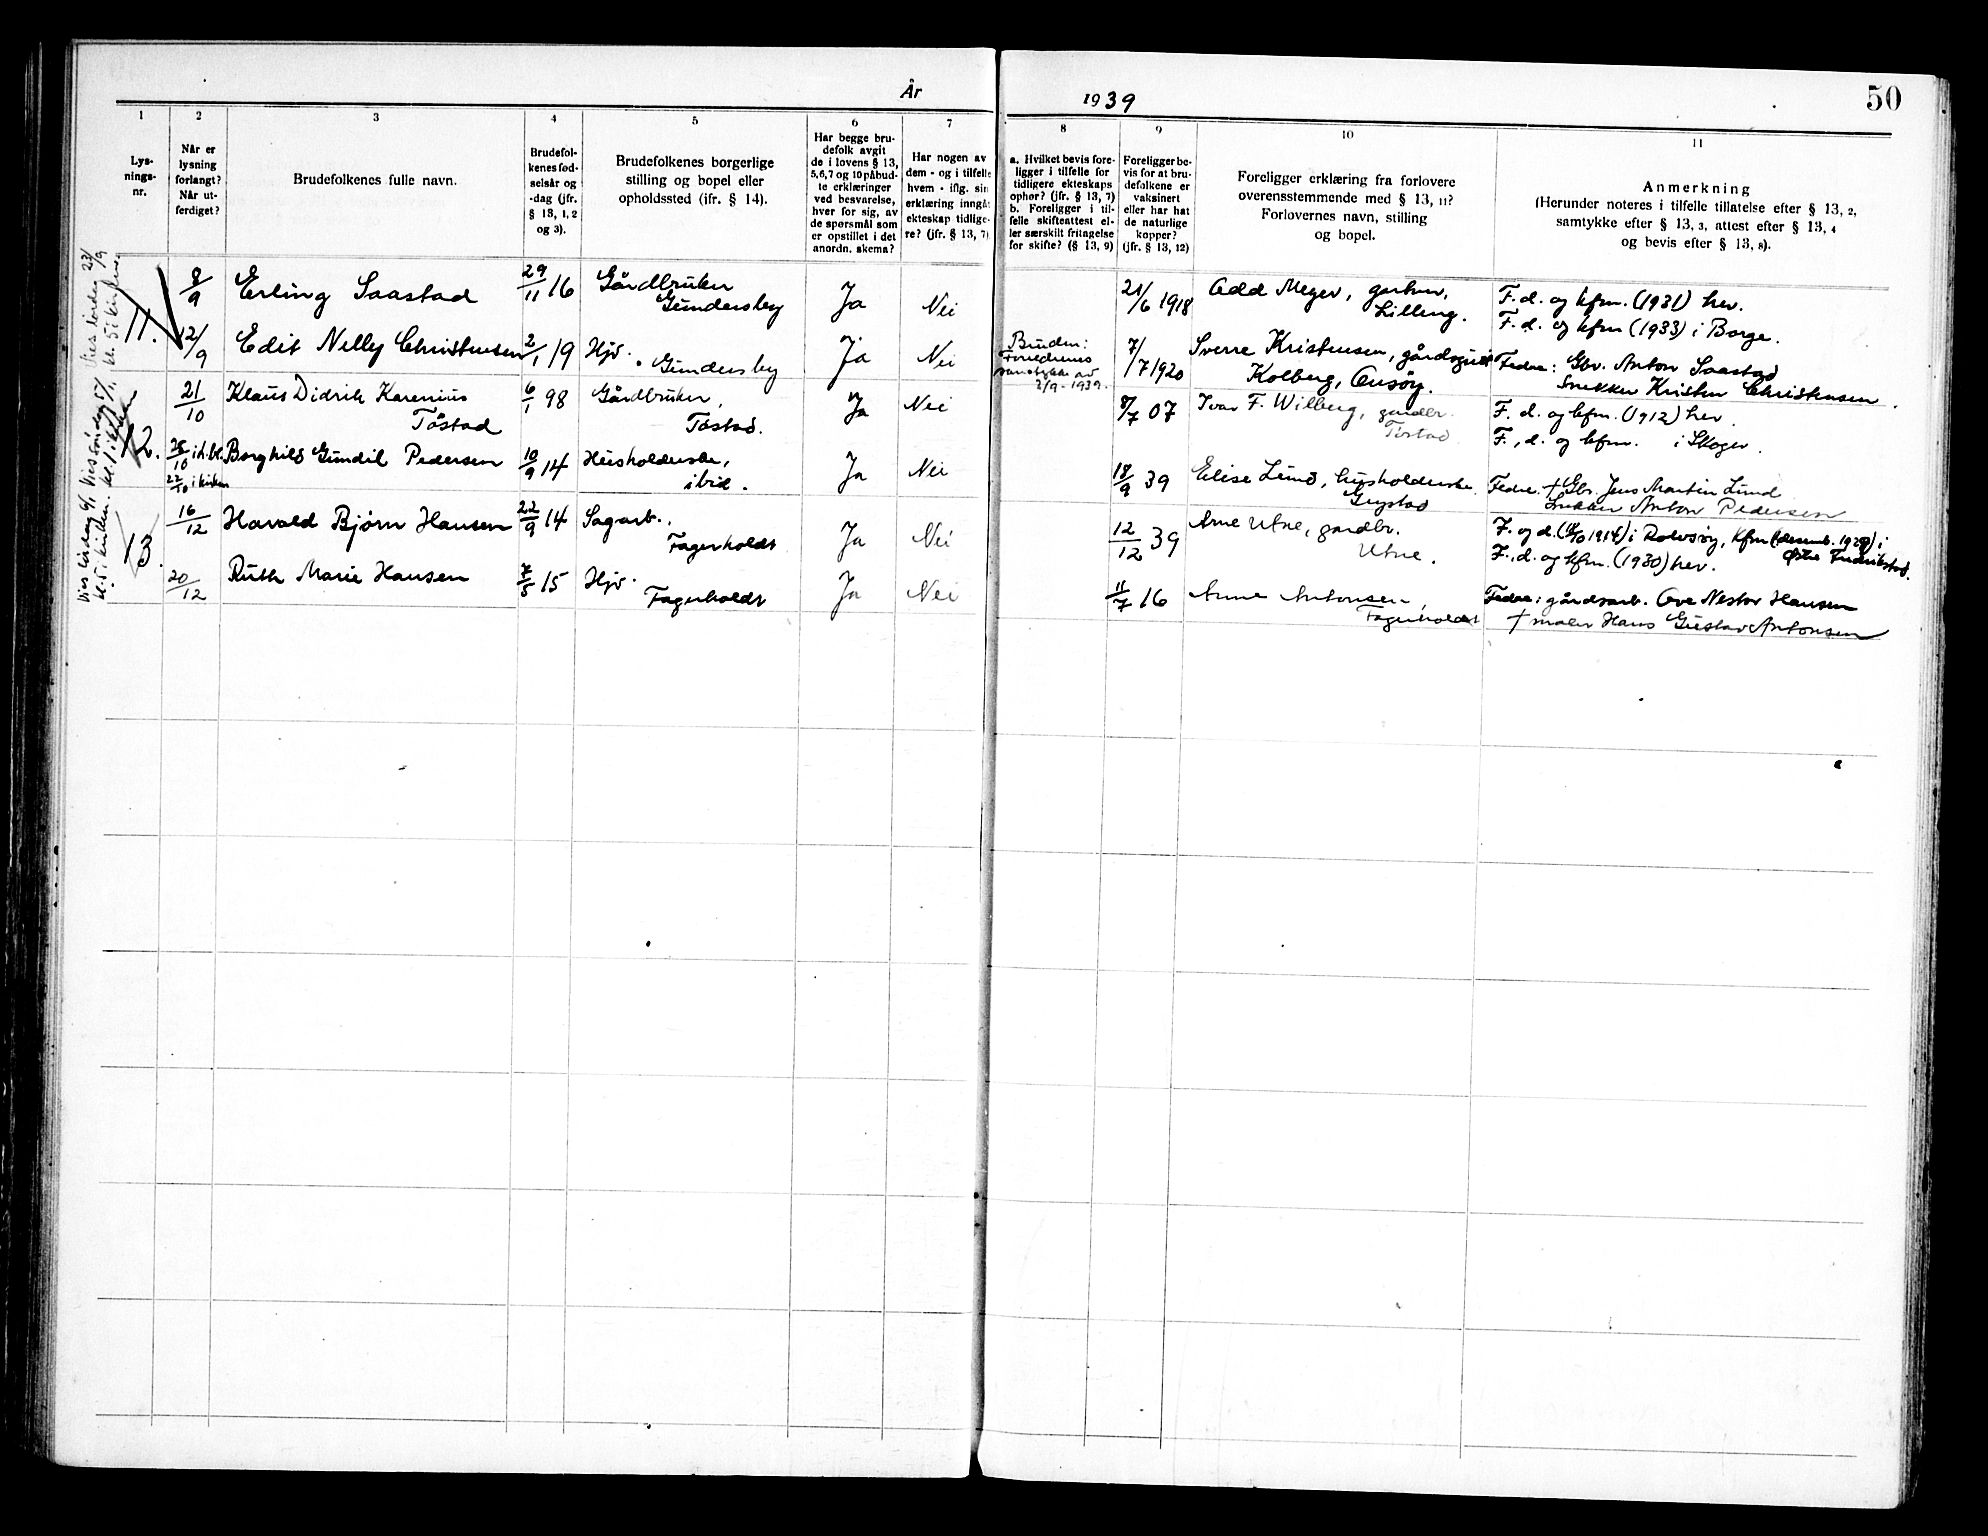 År 1939
50
1
2
3
4
5
6
7
8
9
10
11
Lys-
nings-
nr.
Når er
lysning
forlangt?
Når ut-
ferdiget?
Brudefolkenes fulle navn.
Brudefol-
kenes fød-
selsår og
-dag (jfr.
§ 13, 1, 2
og 3).
Brudefolkenes borgerlige
stilling og bopel eller
opholdssted (ifr. § 14).
Har begge bru-
defolk avgit
de i lovens § 13,
5, 6, 7 og 10 påbud-
te erklæringer
ved besvarelse,
hver for sig, av
de spørsmål som
er opstillet i det
anordn. skema?
Har nogen av
dem - og i tilfelle
hvem - iflg. sin
erklæring inngå
ekteskap tidlige-
re? (jfr. § 13, 7)
a. Hvilket bevis fore-
ligger i tilfelle for
tidligere ekteskaps
ophør? (jfr. § 13, 7)
b. Foreligger i til-
felle skifteattest el-
ler særskilt fritagelse
for skifte? (§ 13, 9)
Foreligger be-
vis for at bru-
defolkene er
vaksinert
eller har hat
de naturlige
kopper?
(jfr. § 13, 12)
Foreligger erklæring fra forlovere
overensstemmende med § 13, 11?
Forlovernes navn, stilling
og bopel.
Anmerkning
(Herunder noteres i tilfelle tillatelse efter § 13, 2,
samtykke efter § 13, 3, attest efter § 13, 4
og bevis efter § 13, 8).
Vies lørdag 23/9
kl. 5 i kirken
11.
8/9 Erling Saastad 29/11 16 Gårdbruker
Gundersby Ja Nei 21/6 1918 Odd Meyer, gartner,
Lilleng. F. d. og kfm. (1931) her.
12/9 Edit Nelly Christensen 2/1 19 Hjv.
Gundersby Ja Nei Bruden:
Foreldrenes
samtykke av
2/9 - 1939. 7/7 1920 Sverre Kristensen,
Kolberg, Onsøy. F. d. og kfm (1933) i Borge.
Fedre: Gbr. Anton Saastad
Snekker Kristen Christensen.
Vies søndag 5/11
kl. 1 i kirken
12.
21/10 Klaus Didrik Karenius
Tøstad 6/1 98 Gårdbruker,
Tøstad. Ja Nei 8/7 07 Ivar F. Wilberg, gardbr.
Tøstad F. d. og kfm. (1912) her
25/10 i h.bl.
22/10 i kirken Borghild Gundil Pedersen 10/9 14 Husholderske,
ibid. Ja Nei 18/9 39 Elise Lund, husholderske
F., d. og kfm. i Skoger.
Fedre: † Gbr. Jens Martin Lund
Snekker Anton Pedersen
Vies lørdag 6/1
kl. 5 i kirken.
13.
16/12 Harald Bjørn Hansen 22/9 14 Sagarb.
Fagerholdt Ja Nei 12/12 39 Arne Utne, gardbr.
Utne. F. og d. 1914) i Rolvsøy, kfm (desemb. 1929) i
Østre Fredrikstad.
20/12 Ruth Marie Hansen 15 Hjv.
Fagerholdt Ja Nei 11/7 16 Anne Antonsen,
Fagerholdt F., d. og kfm. (1930) her.
Fedre: gårdsarb. Ove Nestor Hansen
† maler Hans Gustav Antonsen